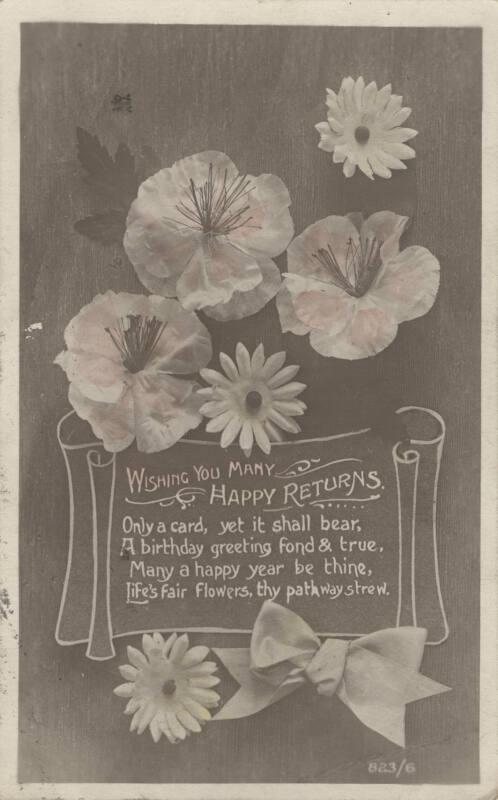 WISHING YOU MANY
HAPPY RETURNS.
Only a card, yet it shall bear,
A birthday greeting fond & true,
Many a happy year be thine,
Life's fair flowers, thy pathway strew.
823/6